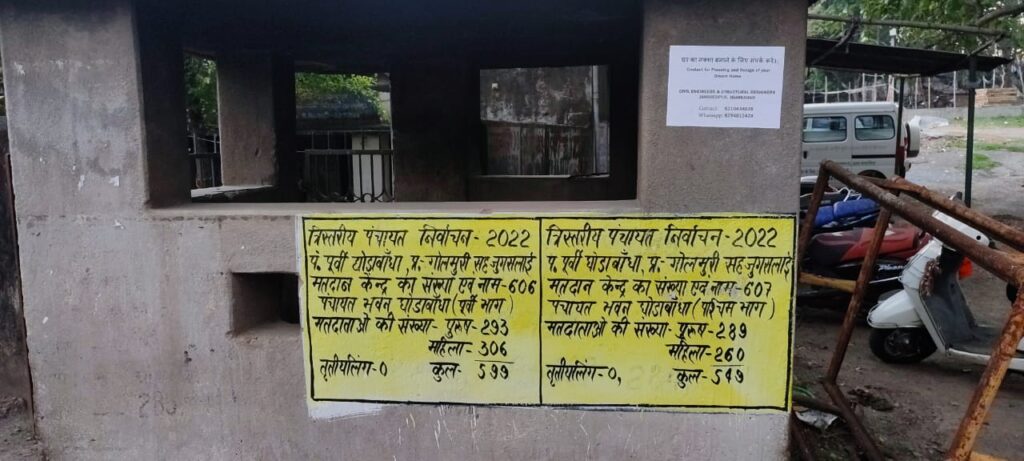 घर का नक्शा बनाने के लिए संपर्क करें।
Contact for Planning and Design of your
Dream Home
CIVIL ENGINEERS & STRUCTURAL DESIGNERS
JAMSHEDPUR, JHARKHAND
Contact:
Whatsapp:
त्रिस्तरीय पंचायत निर्वाचन - 2022
पं. पूर्वी घोड़ाबाँधा, प्र.- गोलमुरी सह जुगसलाई
मतदान केन्द्र का संख्या एवं नाम-606
पंचायत भवन घोड़ाबाँधा (पूर्वी भाग)
मतदाताओं की संख्या- पुरूष- 293
महिला- 306
तृतीयलिंग-0 कुल- 599
त्रिस्तरीय पंचायत निर्वाचन - 2022
पं. पूर्वी घोड़ाबाँधा, प्र.- गोलमुरी सह जुगसलाई
मतदान केन्द्र का संख्या एवं नाम-607
पंचायत भवन घोड़ाबाँधा (पश्चिम भाग)
मतदाताओं की संख्या- पुरूष- 289
महिला- 260
तृतीयलिंग-0, कुल- 549